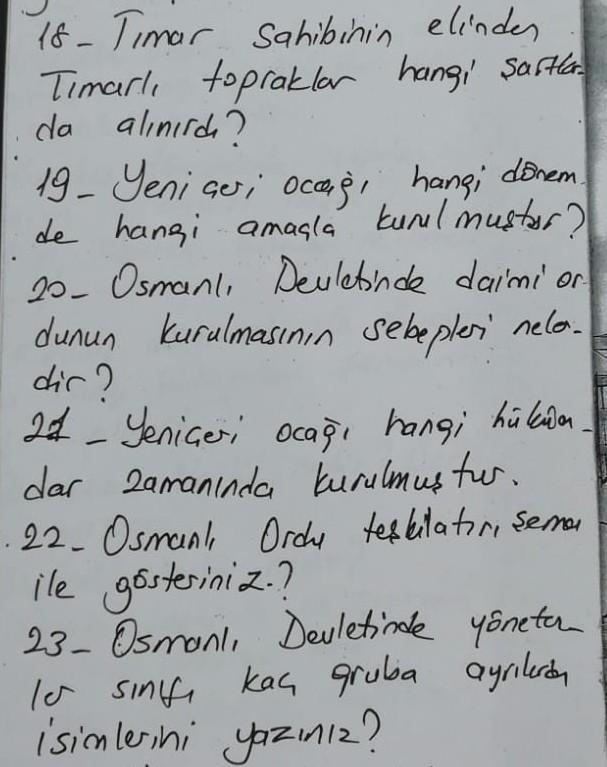 18- Tımar Sahibinin elinden
Tımarlı topraklar hangi şartlar-
da alınırdı?
19- Yeniçeri ocağı hangi dönem
de hangi amaçla kurulmuştur?
20- Osmanlı Devletinde daimi or
dunun kurulmasının sebepleri neler-
dir?
21- Yeniçeri ocağı hangi hüküm-
dar zamanında kurulmuştur.
22- Osmanlı Ordu teşkilatını şema
ile gösteriniz.?
23- Osmanlı Devletinde yöneten-
ler sınıfı kaç gruba ayrılırdı
isimlerini yazınız?